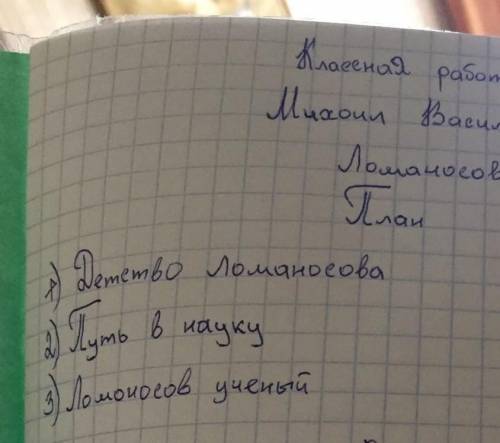 Классная работ
Михоил Васил
Ломаносов
План
1) Детство Ломаносова
2) Путь в науку
3) Ломоносов ученый